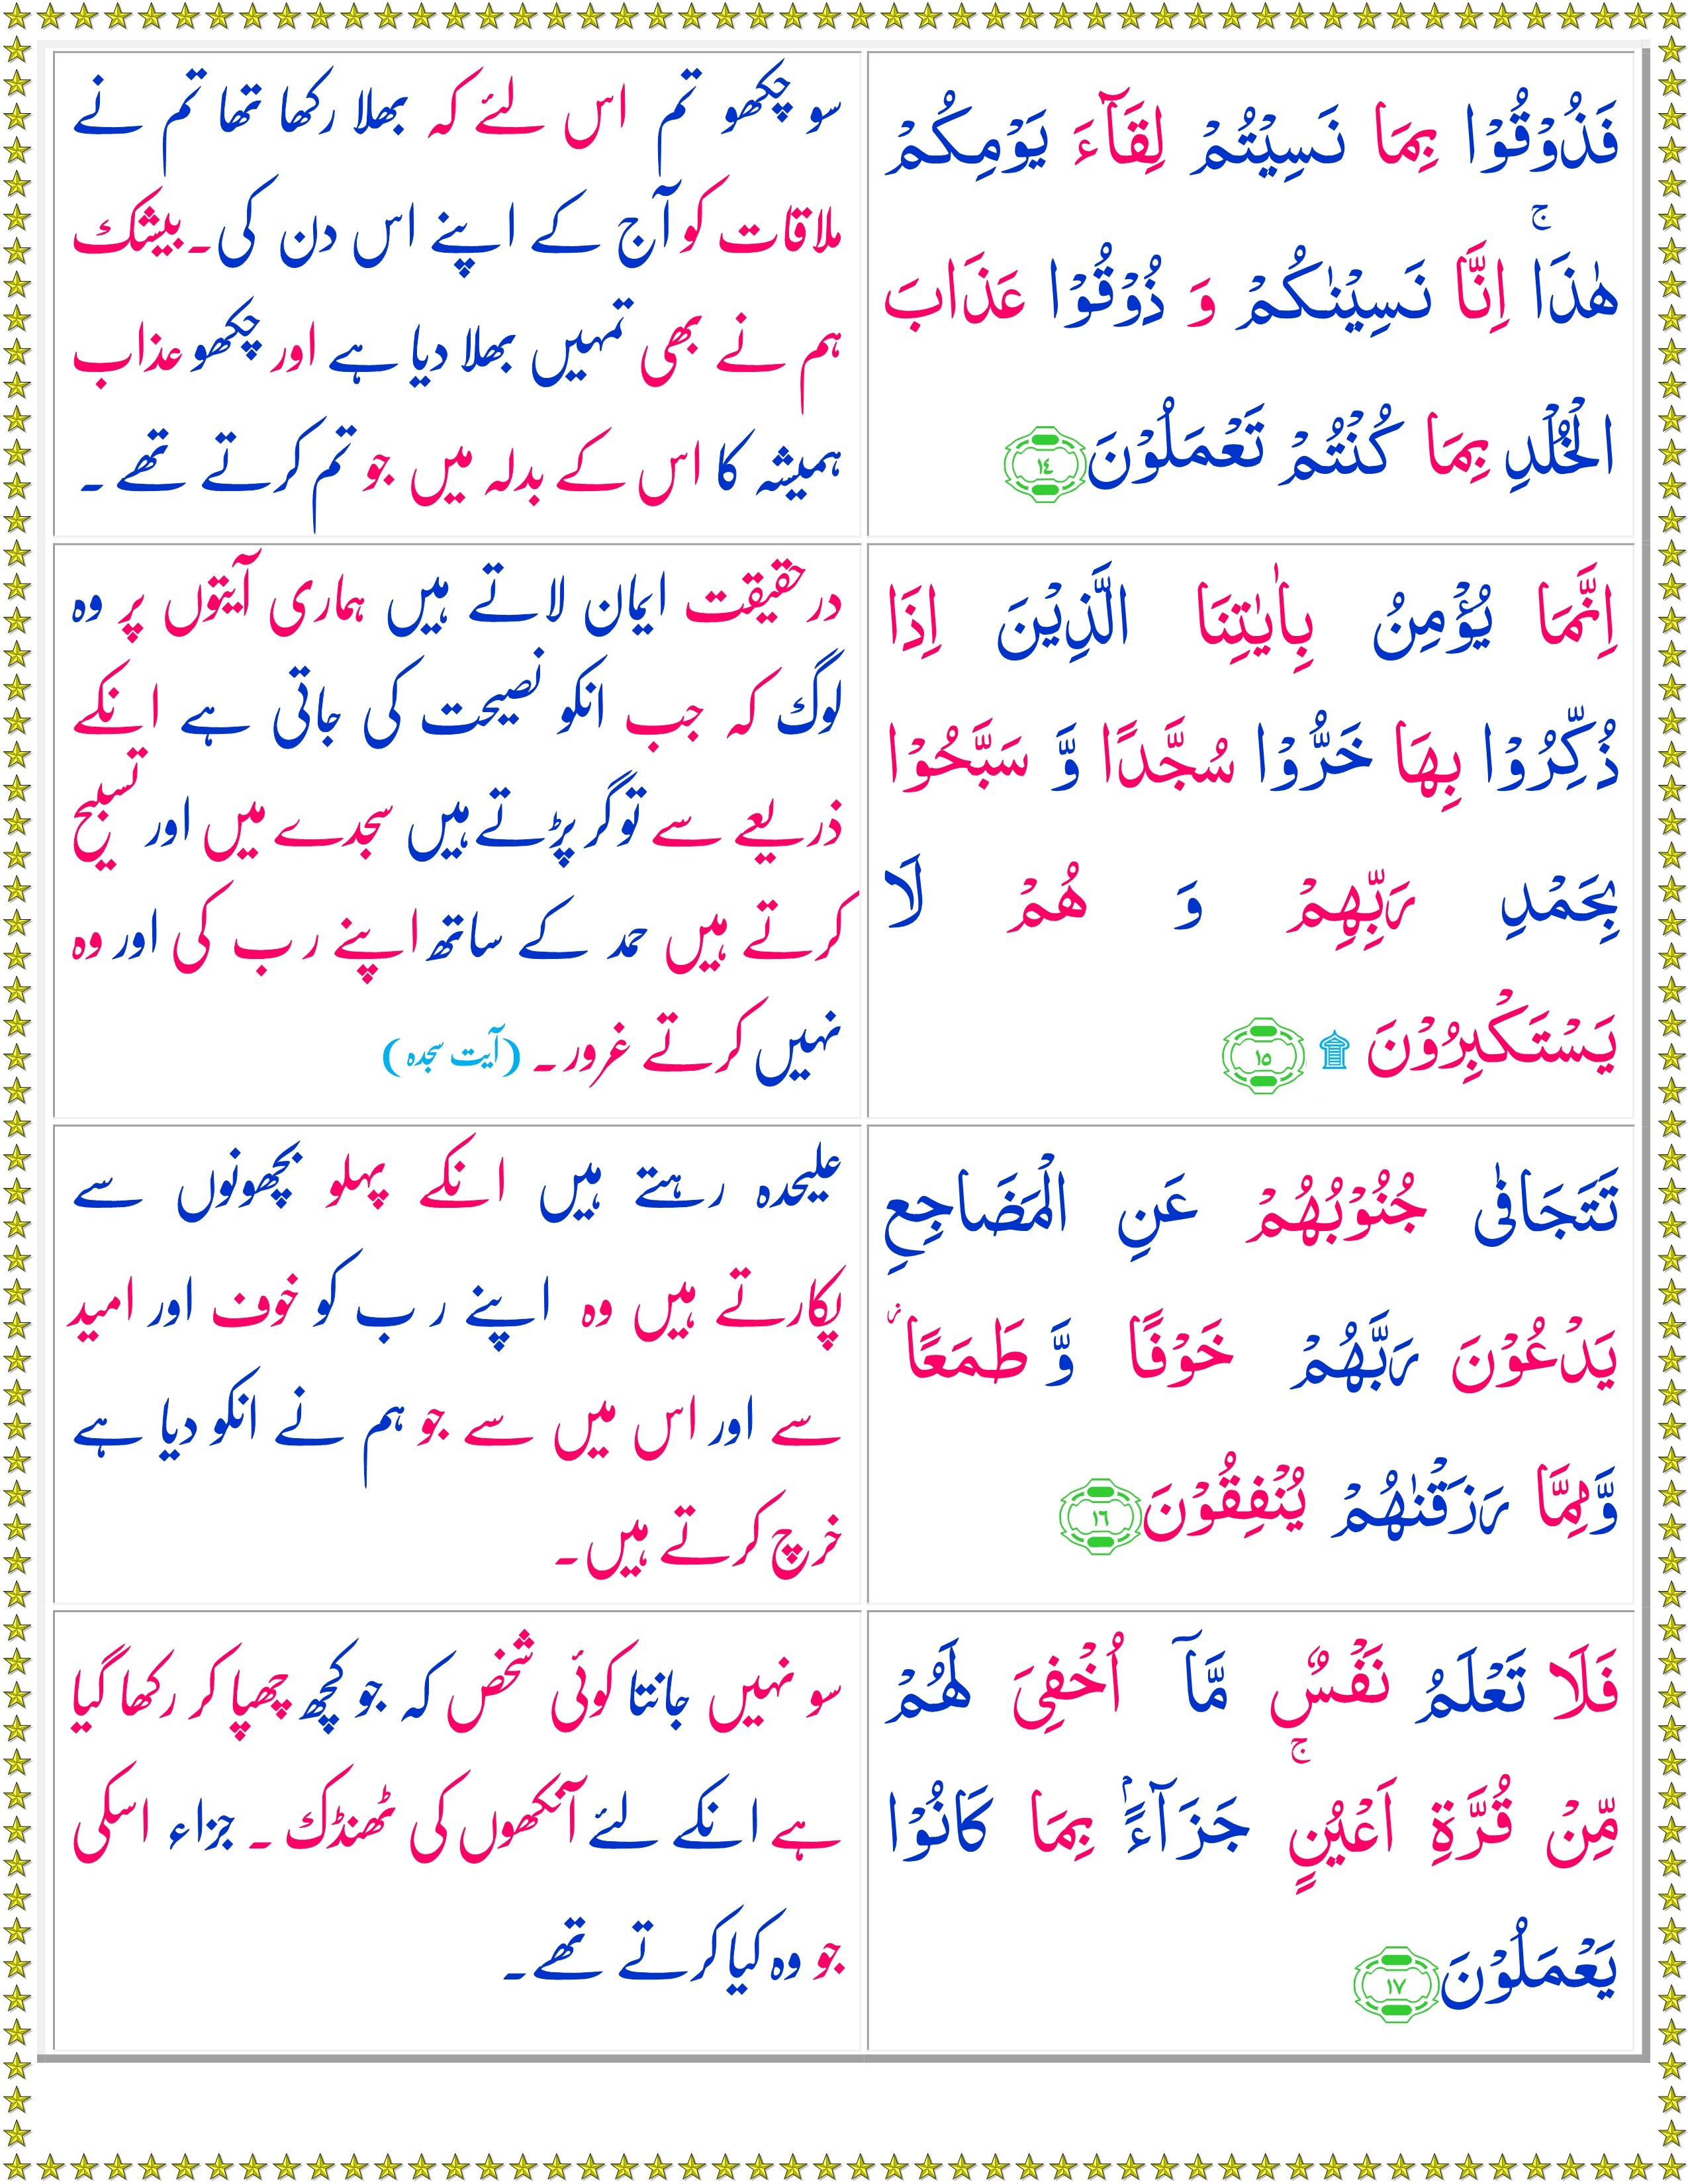 فَذُوْقُوْا بِمَا نَسِيْتُمْ لِقَآءَ يَوْمِكُمْ
هٰذَا ۚ اِنَّا نَسِيْنٰكُمْ وَ ذُوْقُوْا عَذَابَ
الْخُلْدِ بِمَا كُنْتُمْ تَعْمَلُوْنَ ١٤
سو چکھو تم اس لئے کہ بھلا رکھا تھا تم نے
ملاقات کو آج کے اپنے اس دن کی۔ بیشک
ہم نے بھی تمہیں بھلا دیا ہے اور چکھو عذاب
ہمیشہ کا اس کے بدلہ میں جو تم کرتے تھے۔
اِنَّمَا يُؤْمِنُ بِاٰيٰتِنَا الَّذِيْنَ اِذَا
ذُكِّرُوْا بِهَا خَرُّوْا سُجَّدًا وَّ سَبَّحُوْا
بِحَمْدِ رَبِّهِمْ وَ هُمْ لَا
يَسْتَكْبِرُوْنَ ۩ ١٥
درحقیقت ایمان لاتے ہیں ہماری آیتوں پر وہ
لوگ کہ جب انکو نصیحت کی جاتی ہے انکے
ذریعے سے تو گر پڑتے ہیں سجدے میں اور تسبیح
کرتے ہیں حمد کے ساتھ اپنے رب کی اور وہ
نہیں کرتے غرور۔ (آیت سجدہ)
تَتَجَافٰى جُنُوْبُهُمْ عَنِ الْمَضَاجِعِ
يَدْعُوْنَ رَبَّهُمْ خَوْفًا وَّ طَمَعًا ۙ
وَّمِمَّا رَزَقْنٰهُمْ يُنْفِقُوْنَ ١٦
علیحدہ رہتے ہیں انکے پہلو بچھونوں سے
پکارتے ہیں وہ اپنے رب کو خوف اور امید
سے اور اس میں سے جو ہم نے انکو دیا ہے
خرچ کرتے ہیں۔
فَلَا تَعْلَمُ نَفْسٌ مَّآ اُخْفِيَ لَهُمْ
مِّنْ قُرَّةِ اَعْيُنٍ ۚ جَزَآءًۢ بِمَا كَانُوْا
يَعْمَلُوْنَ ١٧
سو نہیں جانتا کوئی شخص کہ جو کچھ چھپا کر رکھا گیا
ہے انکے لئے آنکھوں کی ٹھنڈک۔ جزاء اسکی
جو وہ کیا کرتے تھے۔